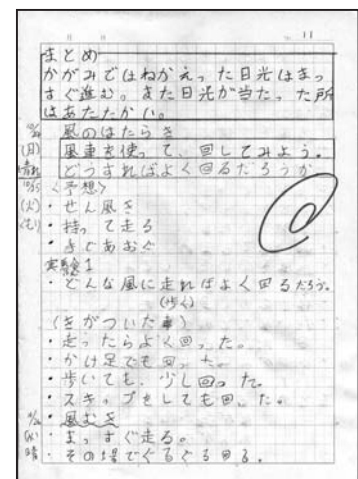 11
まとめ
かがみではねかえった日光はまっ
すぐ進む。また日光が当たった所
はあたたかい。
風のはたらき
(月) 風車を使って、回してみよう。
晴れ どうすればよく回るだろうか
<予想>
(火)・せん風き
・持って走る
・手であおぐ
実験1
・どんな風に走ればよく回るだろう。
(歩く)
(きがついた事)
・走ったらよく回った。
・かけ足でも回った。
・歩いても、少し回った。
・スキップをしても回った。
・風むき
(水)・まっすぐ走る。
晴・その場でぐるぐる回る。